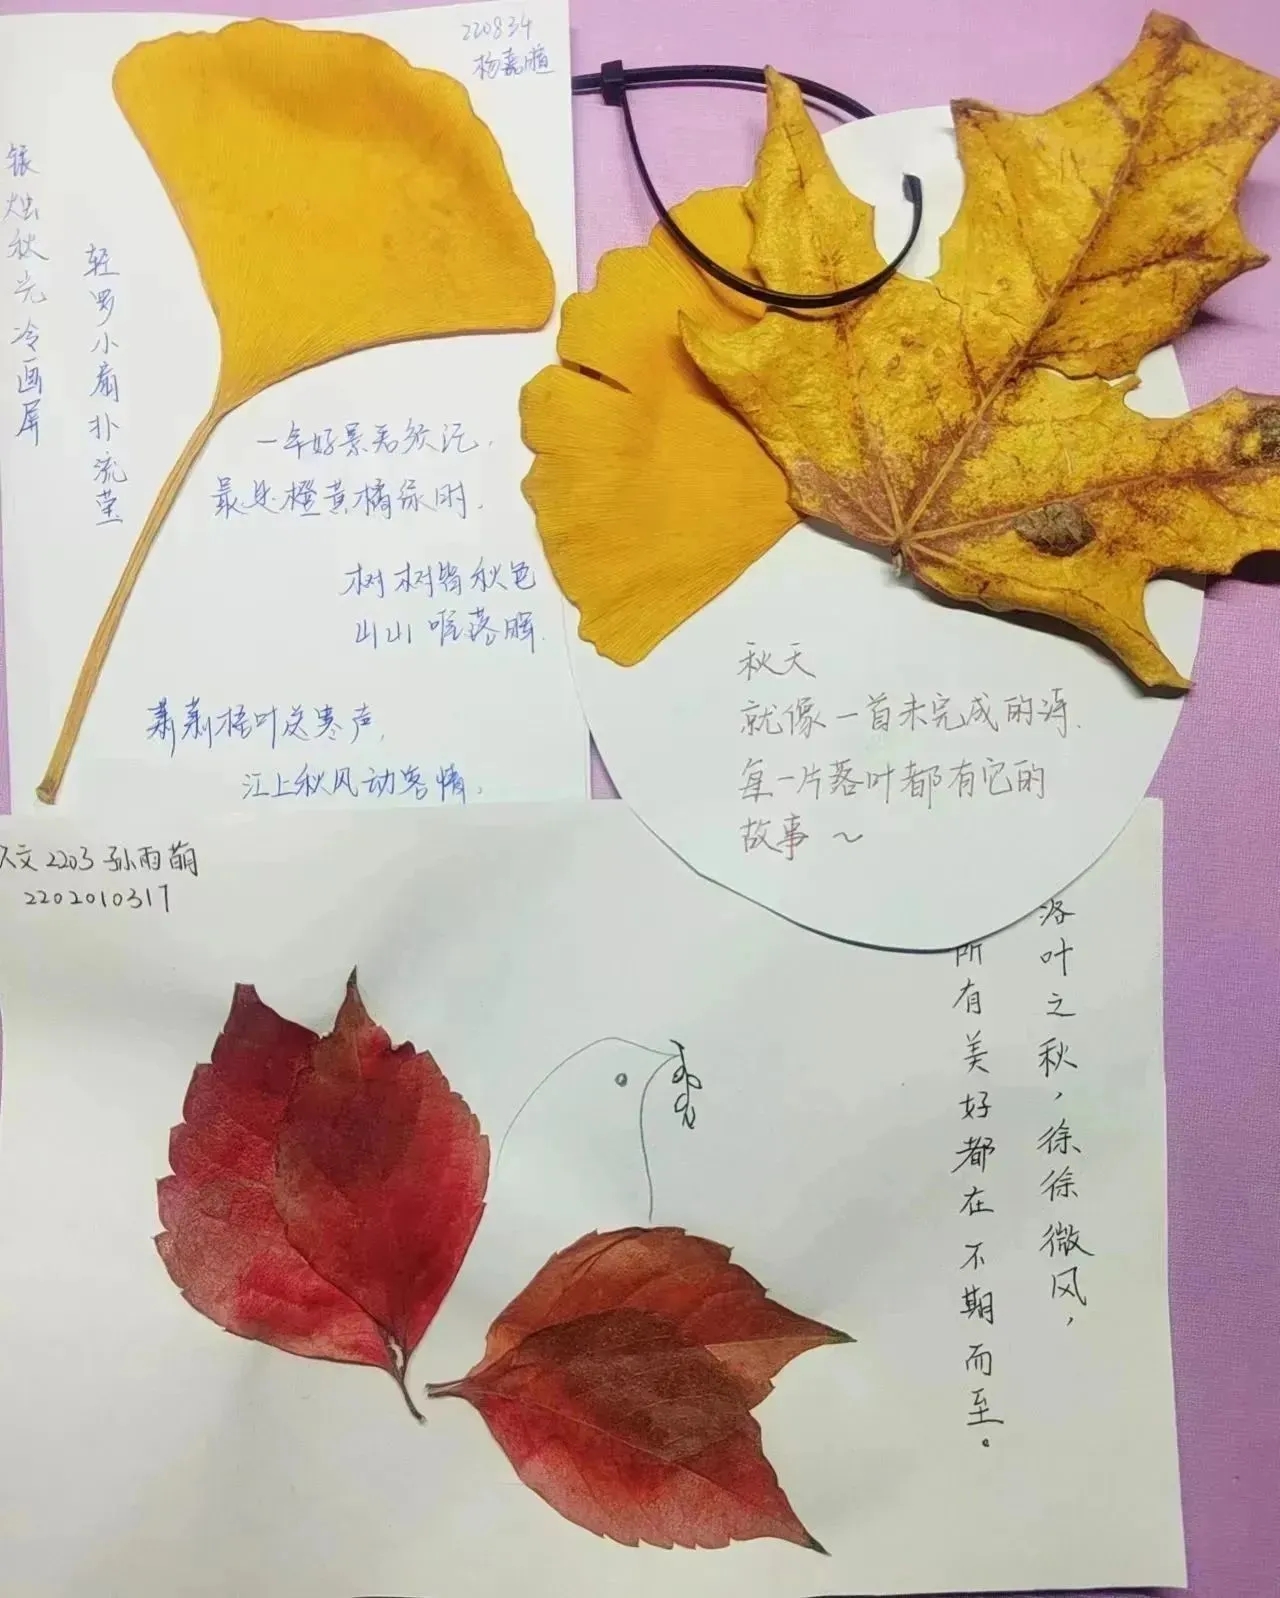 220834
杨嘉暄
银烛秋光冷画屏
轻罗小扇扑流萤
一年好景君须记,
最是橙黄橘绿时.
树树皆秋色
山山唯落晖.
萧萧梧叶送寒声,
江上秋风动客情.
秋天
就像一首未完成的诗.
每一片落叶都有它的
故事～
人文2203 孙雨萌
2202010317
落叶之秋，徐徐微风，
所有美好都在不期而至。